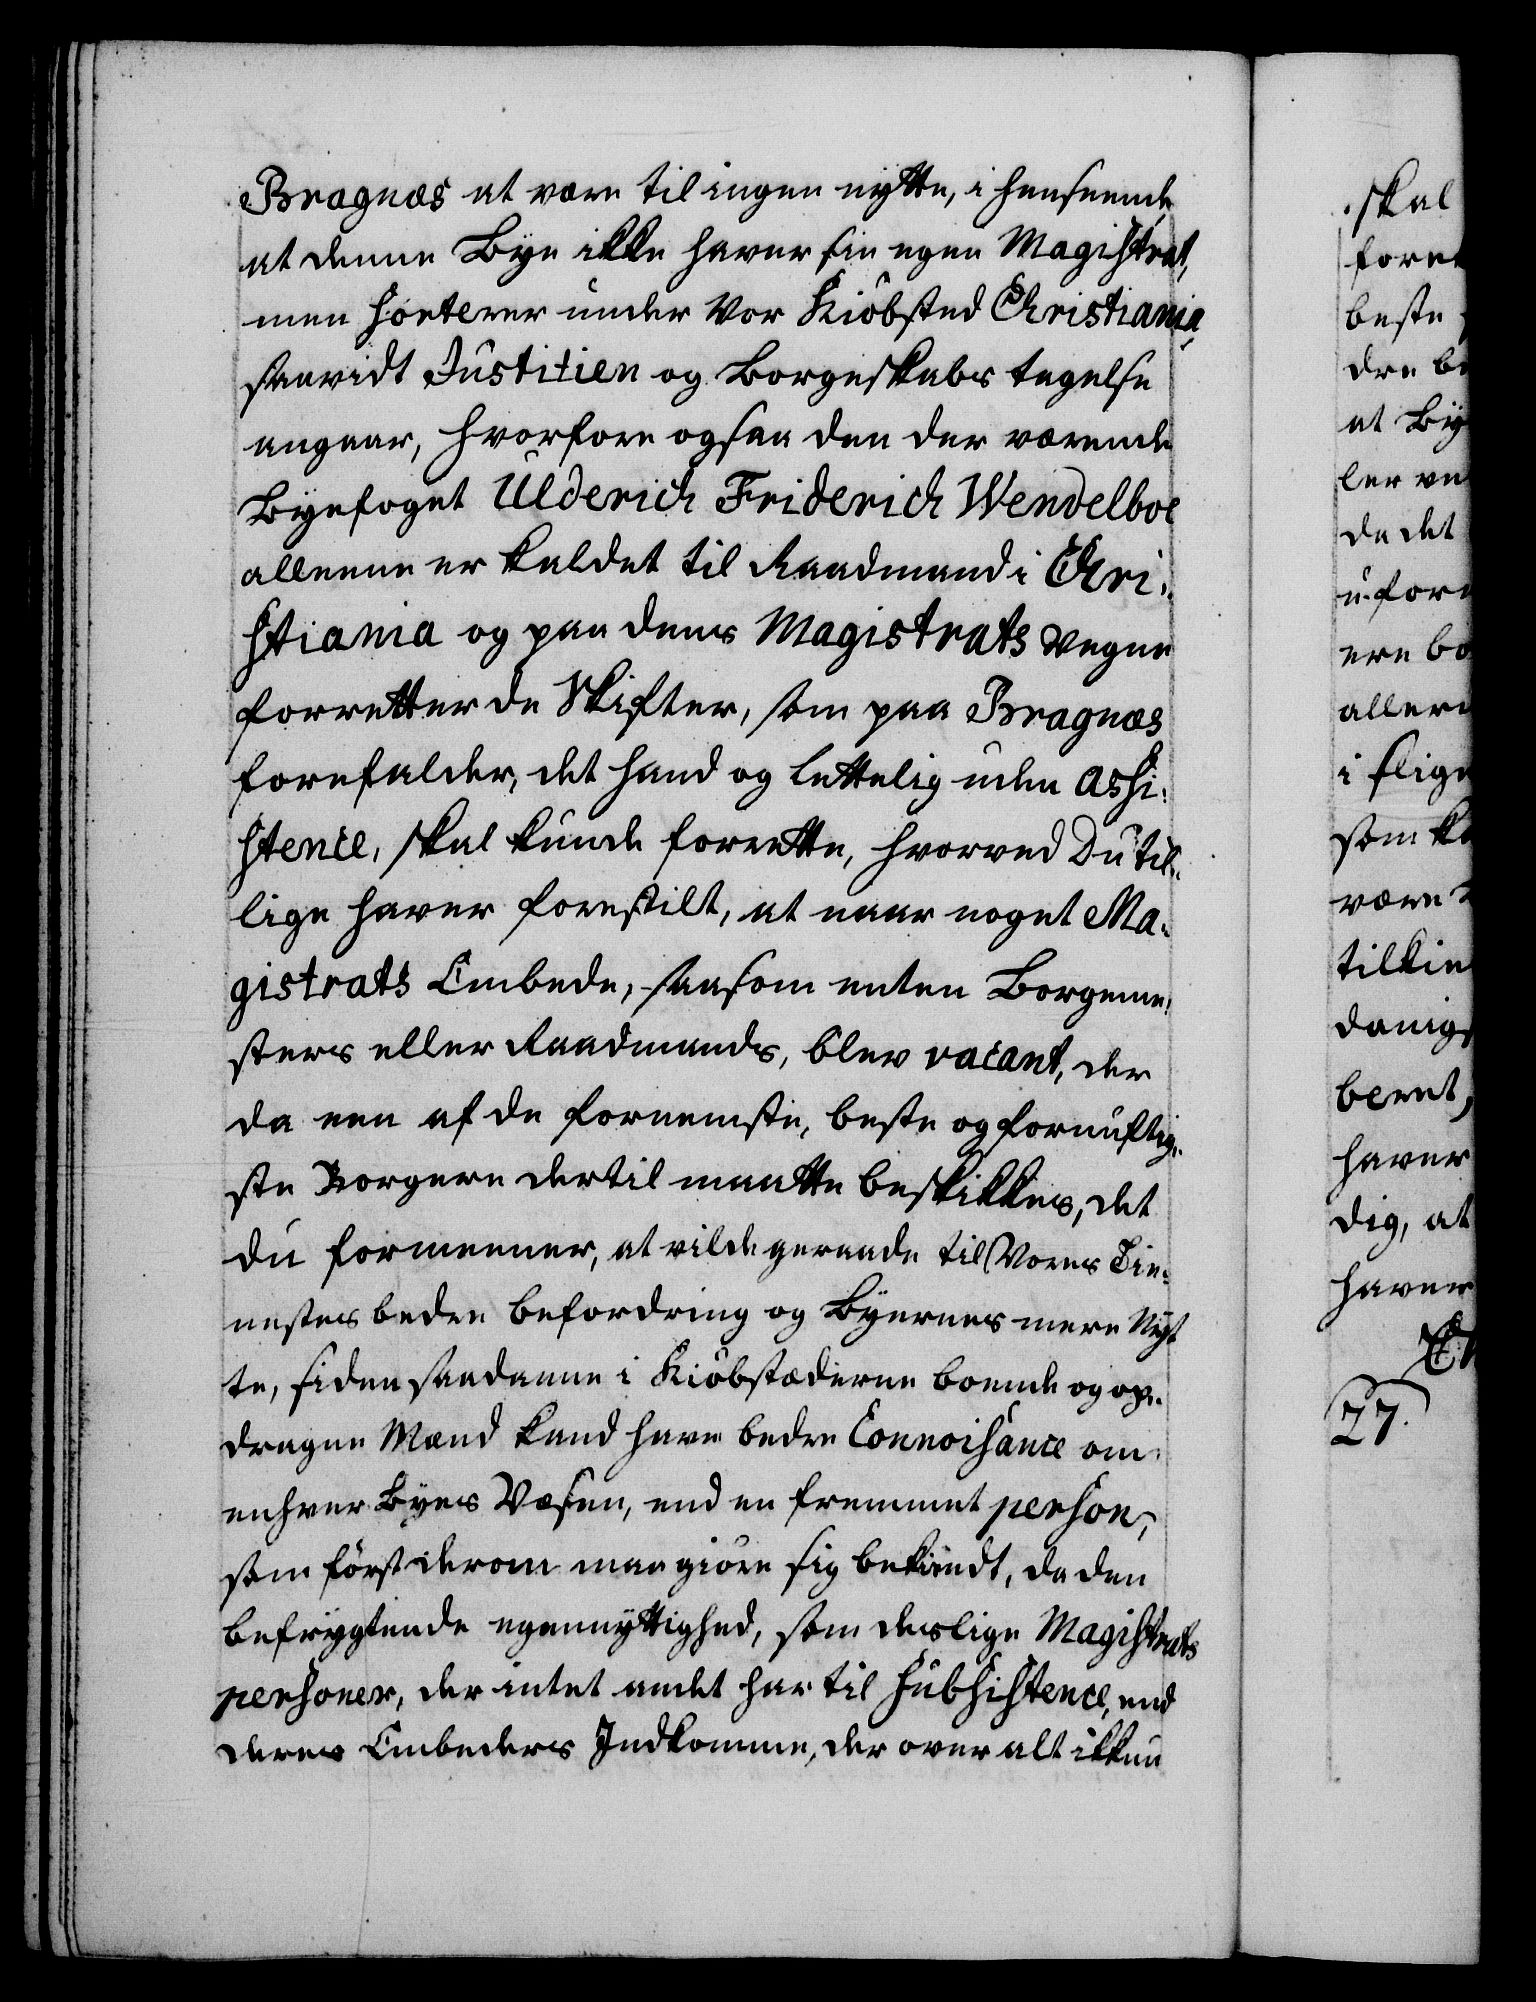 Bragnæs at være til ingen nytte, i henseende
at denne Bye ikke haver sin egen Magistrat,
men sorterer under Vor Kiöbsted Christiania,
saavidt Justitien og Borgeskabs tagelse
angaar, hvorfore ogsaa den der værende
Byefoget Ulderich Friderich Wendelboe
alleene er kaldet til Raadmand i Chri-
stiania og paa dens Magistrats Vegne
forretter de Skifter, som paa Bragnæs
forefalder, det hand og lettelig uden Assi-
stence, skal kunde forrette, hvorved Du til-
lige haver forestilt, at naar noget Ma-
gistrats Embede, saasom enten Borgeme-
sters eller Raadmands, blev vacant, der
da een af de fornemste, beste og fornuftig-
ste Borgere dertil maatte beskikkes, det
du formeener, at vilde geraade til Vores Tie-
nestes bedre befordring og Byernes mere Nyt
te, siden saadanne i Kiöbstæderne boende og op-
dragne Mænd kand have bedre Connoisance om
enhver Byes Væsen, end en fremmet person,
som först derom maa giöre sig bekiendt, da den
befrygtende egennyttighed, som deslige Magistrats
personer, der intet andet har til Subsistence, end
deres Embeders Indkomme, der over alt ikkun
skal
beste
at By
da det
som
være
haver
dig, at
haver
27.